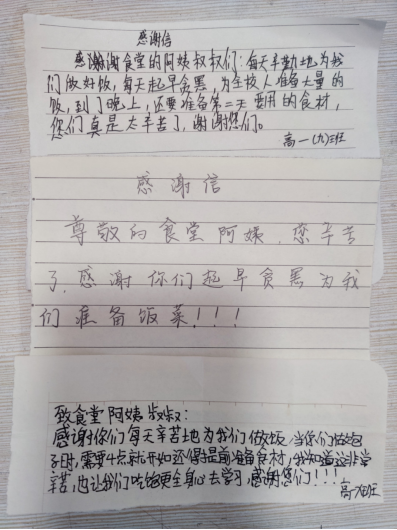 感谢信
感谢谢食堂的阿姨叔叔们：每天辛勤地为我
们做好饭，每天起早贪黑，为全校人准备大量的
饭，到了晚上，还要准备第二天要用的食材，
您们真是太辛苦了，谢谢您们。
高一（九）班
感谢信
尊敬的食堂阿姨，您辛苦
了，感谢你们起早贪黑为我
们准备饭菜！！！
致食堂阿姨叔叔：
感谢你们每天辛苦地为我们做饭，当你们做包
子时，需要4点就开始还得提前准备食材，我知道这非常
辛苦，也让我们吃饱更全身心去学习，感谢您们！！！
高班